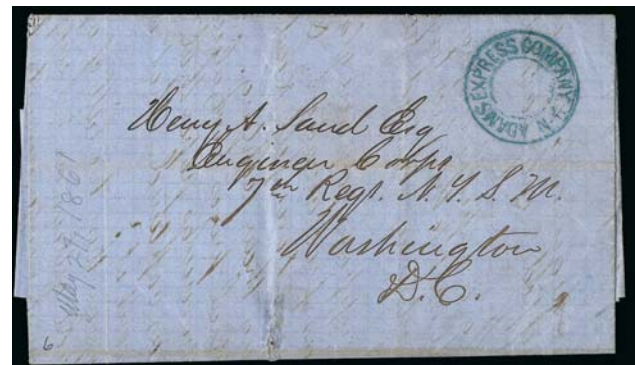 ADAMS EXPRESS COMPANY N.Y.
Henry A. Sand Esq
Engineer Corps
7th Regt. N. Y. S. M.
Washington
D.C.
May 1861
6